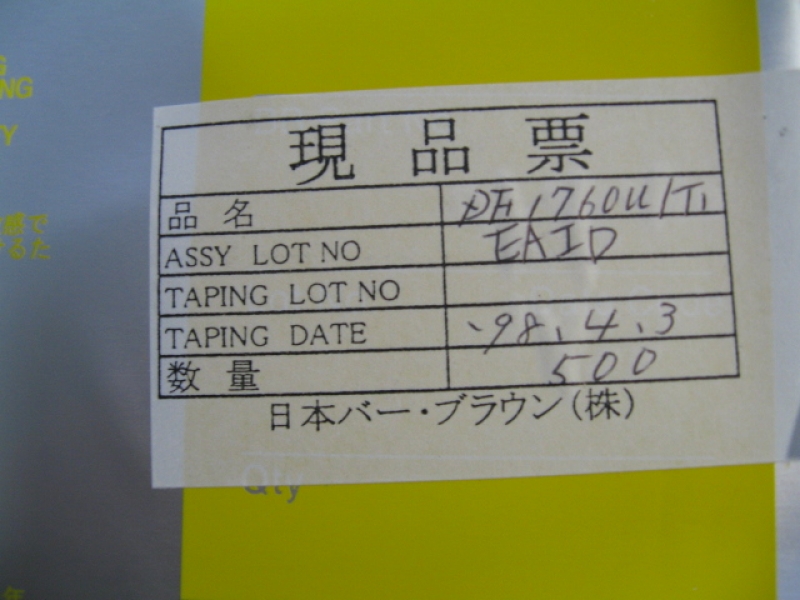 NG
TY
敏感で
けるた
現品票
品名 DF1760U/T1
ASSY LOT NO EAID
TAPING LOT NO
TAPING DATE '98.4.3
数量 500
日本バー・ブラウン(株)
Qty
年